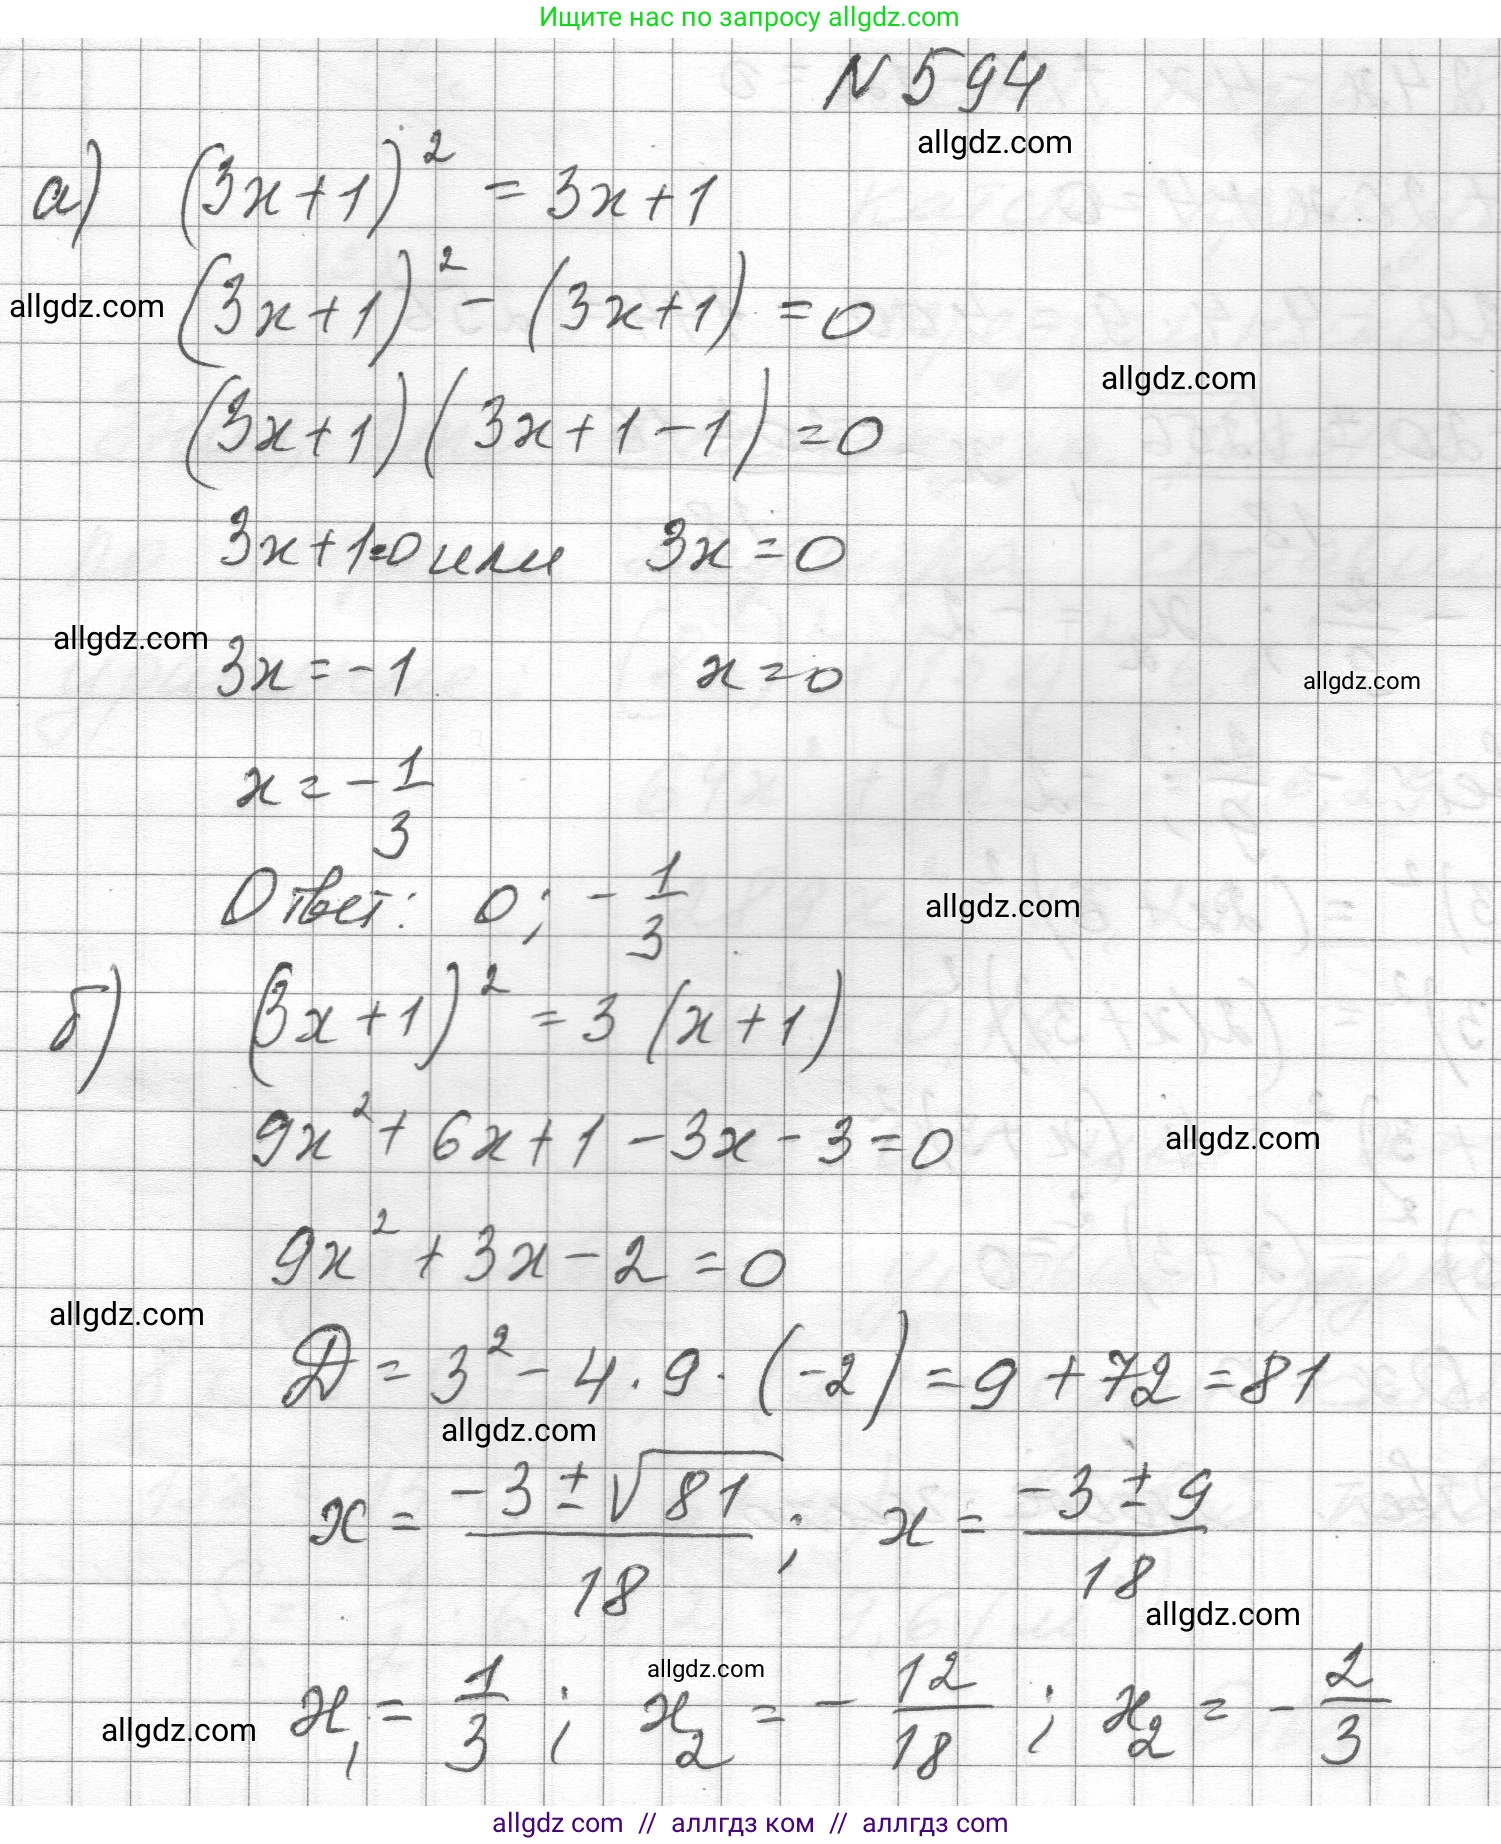 Ищите нас по запросу allgdz.com
N 594
allgdz.com
а) (3x+1)² = 3x+1
allgdz.com (3x+1)² - (3x+1) = 0
allgdz.com
(3x+1)(3x+1-1) = 0
3x+1=0 или 3x=0
allgdz.com
3x = -1 x = 0
allgdz.com
x = -1/3
Ответ: 0; -1/3
allgdz.com
б) (3x+1)² = 3(x+1)
9x² + 6x + 1 - 3x - 3 = 0
allgdz.com
9x² + 3x - 2 = 0
allgdz.com
Д = 3² - 4 · 9 · (-2) = 9 + 72 = 81
allgdz.com
x = (-3 ± √81)/18 ; x = (-3 ± 9)/18
allgdz.com
allgdz.com
x₁ = 1/3 ; x₂ = -12/18 ; x₂ = -2/3
allgdz.com
allgdz com // аллгдз ком // аллгдз com